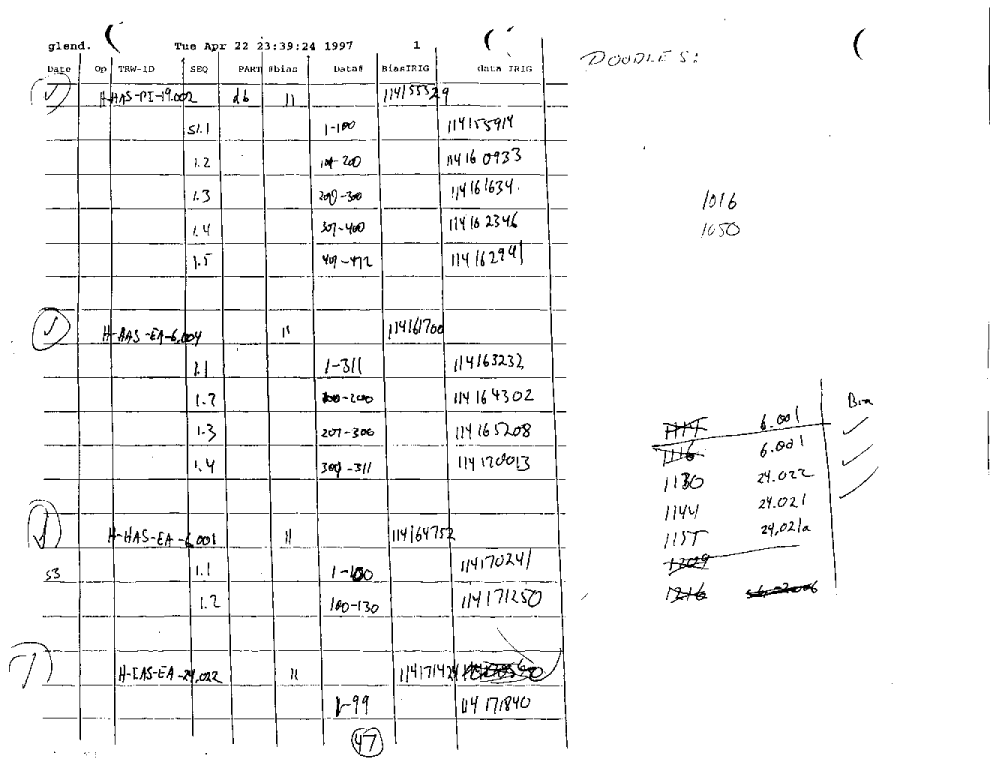 glend. Tue Apr 22 23:39:24 1997 1
Date Op TRW-ID SEQ PART #bias Data# BiasIRIG data IRIG
H-HAS-PI-19.002 db 11 114155329
S1.1 1-100 114155914
1.2 101-200 114160933
1.3 200-300 114161634
1.4 301-400 114162346
1.5 401-472 114162941
H-AAS-EA-6.004 11 114161700
1.1 1-311 114163232
1.2 100-200 114164302
1.3 207-300 114165208
1.4 300-311 114170013
H-HAS-EA-6.001 11 114164752
S3 1.1 1-100 114170241
1.2 100-130 114171250
H-IAS-EA-24.022 11 114171424
1-99 114171840
47
DOODLES:
1016
1050
Bia
6.001
1116 6.001
1130 24.022
1144 24.021
1155 24.021a
1209
1216